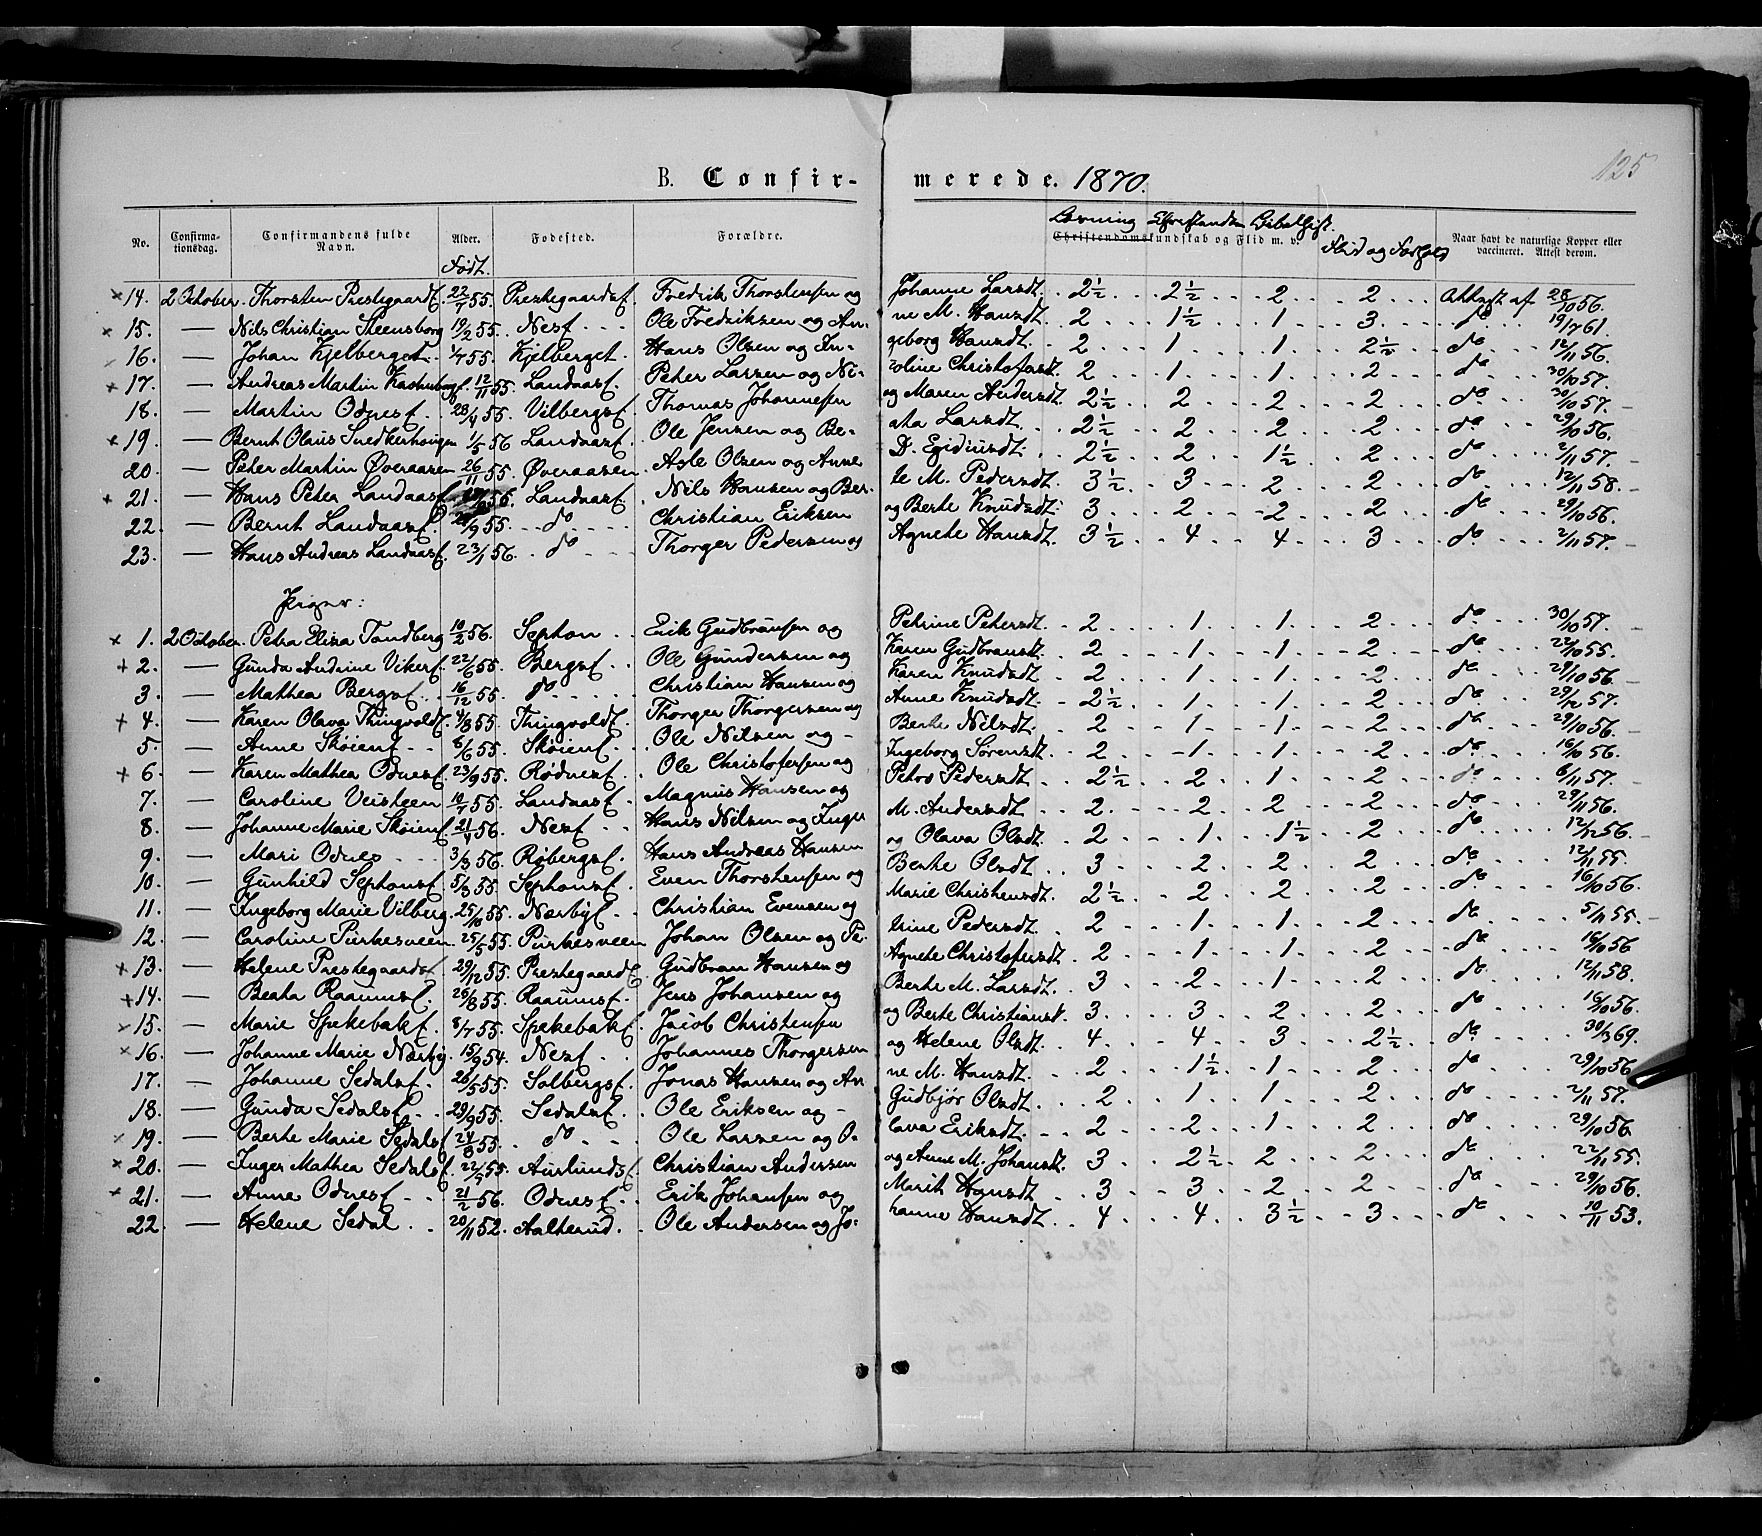 125
B. Confir-merede. 1870.
No. Confirmationsdag. Confirmandens fulde Navn. Alder. Født. Fødested. Forældre. Læsning Christendomskundskab og Flid m. v. Flid og Forhold Naar havt de naturlige Kopper eller vaccineret. Attest derom.
14. 2 October. Thorsten Prestegaardsf. 22/7 55. Prestegaardsf. Fredrik Thorstensen og Johanne Larsdt. 2½ 2½ 2 2 Attest af 28/10 56.
15. — Nils Christian Steensborg 19/2 55. Nesf. Ole Fredriksen og An-ne M. Hansdt. 2 1½ 1 3 do 19/7 61.
16. — Johan Kjelberget. 1/7 55. Kjelberget. Hans Olsen og In-geborg Hansdt. 2 1 1 2½ do 12/11 56.
17. — Andreas Martin 12/11 55. Landaasf. Peter Larsen og Ni-coline Christofersdt. 2 1 1 2 do 30/10 57.
18. — Martin Odnesf. 28/4 55. Vilbergsf. Thomas Johannesen og Maren Andersdt. 2½ 2 2 2 do 30/10 57.
19. — Bernt Olaus Snedkerhougen 1/5 56 Landaasf. Ole Jensen og Be-ata Larsdt. 2½ 2 2 2 do 29/10 56.
20. — Peter Martin Øveraasen 26/11 55 Øveraasen. Asle Olsen og Anne D. Egidiusdt. 2½ 2 1½ 2 do 2/11 57.
21. — Hans Peter Landaasf. 56. Landaasf. Nils Hansen og Ber-te M. Pedersdt. 3½ 3 2 2 do 12/11 58.
22. — Bernt Landaasf. 55. do Christian Eriksen og Berte Knudsdt. 3 2 2 2 do 29/10 56.
23. — Hans Andreas Landaasf. 23/1 56. do Thorger Pedersen og Agnete Hansdt. 3½ 4 4 3 do 2/11 57.
Piger:
1. 2 October. Petra Elisa Tandberg 10/2 56. Sephon Erik Gudbransen og Petrine Petersdt. 2 1 1 2 do 30/10 57.
2. — Gunda Andrine Vikersf. 22/6 55. Bergsf. Ole Gundersen og Karen Gudbransdt. 2 1 1 2 do 22/10 55.
3. — Mathea Bergsf. 16/12 55. do Christian Hansen og Karen Knudsdt. 2 1 1 2 do 29/10 56.
4. — Karen Olava Thingvoldf. 4/8 55. Thingvoldf. Thorger Thorgersen og Anne Knudsdt. 2½ 1 1 2 do 29/12 57.
5. — Anne Skøienf. 6/6 55. Skøienf. Ole Nilsen og - Berte Nilsdt. 2 1 1 2 do 29/10 56.
6. — Karen Mathea Odnesf. 23/9 55. Rødnesf. Ole Christofersen og Ingeborg Sørensdt. 2 1 1 2 do 16/10 56.
7. — Caroline Veisteen 10/7 55. Landaasf. Magnus Hansen og Petra Pedersdt. 2½ 2 1 2 do 6/11 57.
8. — Johanne Marie Skøienf. 21/4 56. Nesf. Hans Nilsen og Inger M. Andersdt. 2 2 2 2 do 29/11 56.
9. — Mari Odnes 3/3 56. Røbergsf. Hans Andreas Hansen og Olava Olsdt. 2 1 1½ 2 do 12/12 56.
10. — Gunhild Sephonsf. 5/3 55. Sephonsf. Even Thorstensen og Berte Olsdt. 3 2 2 2 do 12/11 55.
11. — Ingeborg Marie Vilberg. 25/10 55. Nærbyf. Christian Evensen og Marie Christensdt. 2½ 2 2 2 do 16/10 56.
12. — Caroline Purkesveen 25/5 55. Purkesveen Johan Olsen og Pe-trine Pedersdt. 2 1 1 2 do 5/11 55.
13. — Helene Prestegaardsf. 29/12 55. Prestegaardf. Gudbran Hansen og Agnete Christofersdt. 2 1 1 2 do 16/10 56
14. — Beata Raaumsf. 26/8 55. Raaumsf. Jens Johansen og Berte M. Larsdt. 3 2 1 2 do 12/11 58.
15. — Marie Spekebakf. 8/7 55. Spekebakf. Jacob Christensen og Berte Christiansdt. 3 3 2 2 do 16/10 56.
16. — Johanne Marie Nærby. 15/9 54. Nesf. Johannes Thorgersen og Helene Olsdt. 4 4 3 2½ do 30/3 69.
17. — Johanne Sedalsf. 26/5 55. Solbergsf. Jonas Hansen og An-ne M. Hansdt. 2 1½ 1 2 do 29/10 56
18. — Gunda Sedalsf. 29/9 55. Sedalsf. Ole Eriksen og - Gudbjør Olsdt. 2 1 1 2 do 2/11 57.
19. — Berte Marie Sedalsf. 24/8 55. do Ole Larsen og O-lava Eriksdt. 2 2 1 2 do 29/10 56.
20. — Inger Mathea Sedalsf. 22/9 55. Aurlundsf. Christian Andersen og Anne M. Johansdt. 3 2½ 2 2 do 22/11 55.
21. — Anne Odnesf. 21/2 56. Odnesf. Erik Johansen og Marit Hansdt. 3 3 2 2 do 29/10 56.
22. — Helene Sedal 20/11 52. Aalterud. Ole Andersen og Jo-hanne Hansdt. 4 4 3½ 3 do 10/11 53.